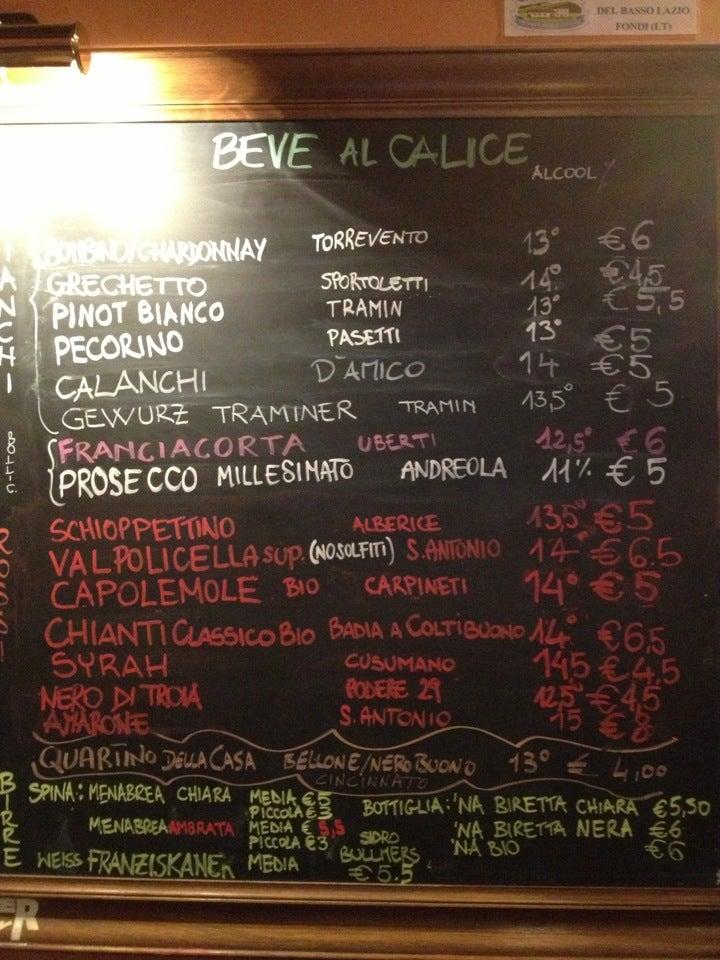 DEL BASSO LAZIO
FONDI (LT)
BEVE AL CALICE
ALCOOL %
BIANCHI
BOMBINO/CHARDONNAY TORREVENTO 13° €6
GRECHETTO SPORTOLETTI 14° €4,5
PINOT BIANCO TRAMIN 13° €5,5
PECORINO PASETTI 13° €5
CALANCHI D'AMICO 14 €5
GEWURZ TRAMINER TRAMIN 13,5° € 5
BOLLIC.
FRANCIACORTA UBERTI 12,5° €6
PROSECCO MILLESIMATO ANDREOLA 11% €5
ROSSI
SCHIOPPETTINO ALBERICE 13,5° €5
VALPOLICELLA SUP. (NO SOLFITI) S.ANTONIO 14° €6.5
CAPOLEMOLE BIO CARPINETI 14° €5
CHIANTI CLASSICO BIO BADIA A COLTIBUONO 14° €6,5
SYRAH CUSUMANO 14,5 €4.5
NERO DI TROIA PODERE 29 12,5° €4,5
AMARONE S.ANTONIO 15 €8
QUARTINO DELLA CASA BELLONE/NERO BUONO 13° € 4,00
CINCINNATO
BIRRE
SPINA: MENABREA CHIARA MEDIA €5
PICCOLA €3
MENABREA AMBRATA MEDIA € 5,5
PICCOLA €3
WEISS FRANZISKANER MEDIA
SIDRO
BULLMERS
€5.5
BOTTIGLIA: 'NA BIRETTA CHIARA €5,50
'NA BIRETTA NERA €6
'NA BIO €6